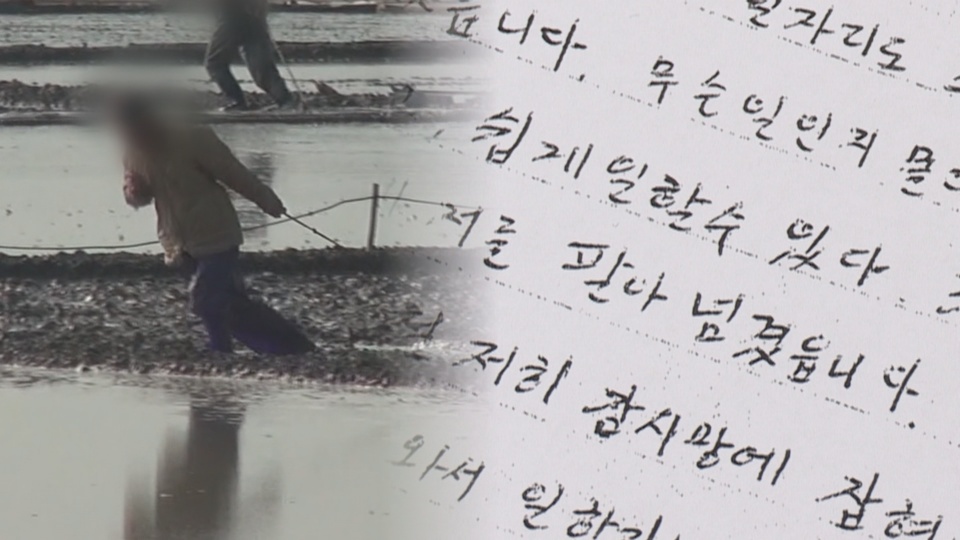 일자리도
읍니다. 무슨일인지 몰
쉽게일할수 있다.
저를 판아 넘겼읍니다.
저희 감시망에 잡혀
와서 일하기